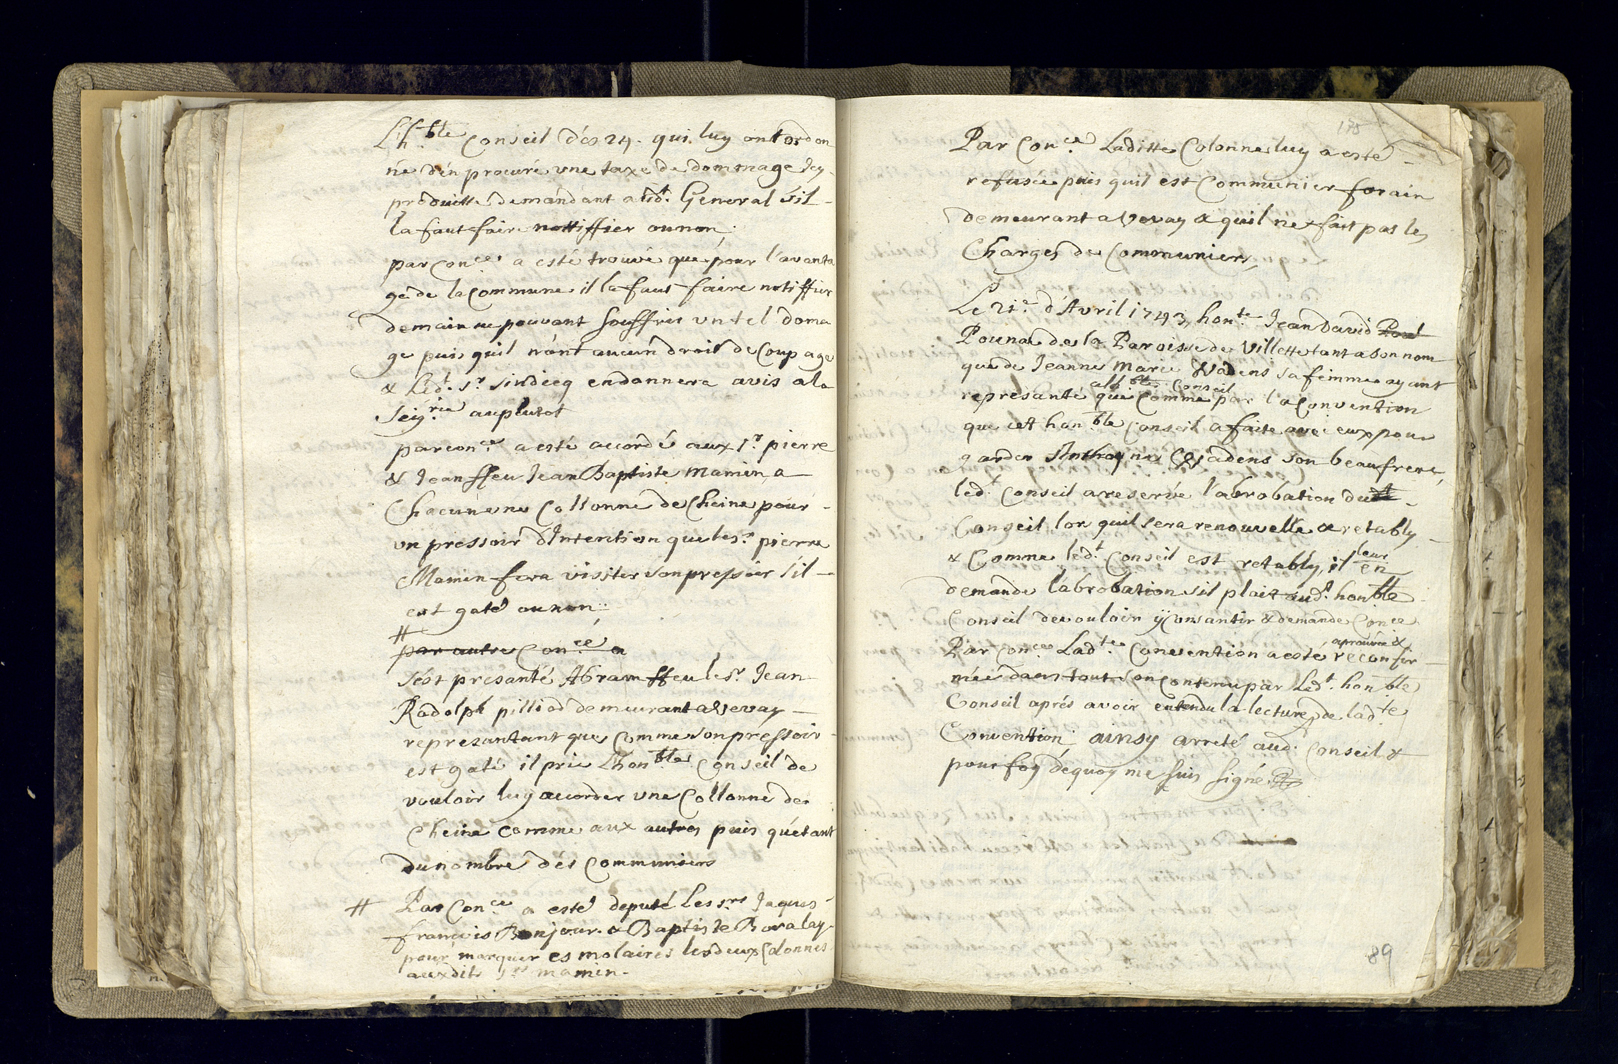 L'h.ble Conseil dés 24. qui luy ont ordon
né d'en procuré une taxe de dommage Icy
produitte demandant aud.t General s'il
la faut faire nottiffier ou non;
par con.ce a esté trouvé que pour l'avanta
ge de la Commune il la faut faire notiffier
demain ne pouvant souffrir un tel doma
ge puis quil n'ont aucun droit de Coupage
& Led.t S.r sindicq en donnera avis a la
Seig.rie au plutot
par con.ce a esté accordé aux S.r pierre
& Jean ffeu Jean Baptiste Mamin, a
Chacun une Collonne de Cheine pour
un pressoir d'Intention que le S.r pierre
Mamin fera visiter son pressoir s'il
est gaté ou non:
#
par autre Con.ce a
S'est presanté Abram ffeu le S.r Jean
Rodolph pilliod demeurant a Vevay
represantant que Comme son pressoir
est gaté il prie L'hon.ble Conseil de
vouloir luy accorder une Collonne de
Cheine comme aux autres puis qu'etant
du nombre dés Communiers
# Par Con.ce a esté deputé Les S.rs Jaques
françois Bonjour & Baptiste Bovalay
pour marquer es molaires les deux Colonnes
auxdits S.rs mamin.
Par Con.ce Laditte Colonne luy a esté
refusée puis quil est Communier forain
demeurant a Vevay & quil ne fait pas les
Charges de Communiers,
Le 21.e d'Avril 1743, hon.te Jean David
Pounaz de la Paroisse de Villette tant a son nom
que de Jeanne Marie Cadens sa femme ayant
represanté que Comme par la Convention
aud. h.ble Conseil
que cet hon.ble Conseil a faite avec eux pour
garder Anthoyne Cadens son beaufrere,
led.t Conseil a reservé l'abrobation dud.t
Conseil lor quil sera renouvellé & retably
& Comme led.t Conseil est retably, il leur en
demande l'abrobation s'il plait aud.t hon.ble
Conseil de vouloir y Consantir & demande Con.ce
Par Con.ce Lad.te Convention a esté aprouvée & reconfir
mée dans tout son Contenu par Led.t hon.ble
Conseil aprés avoir entendu la lecture de lad.te
Convention ainsy arreté aud. Conseil &
pour foy dequoy me suis signé
89